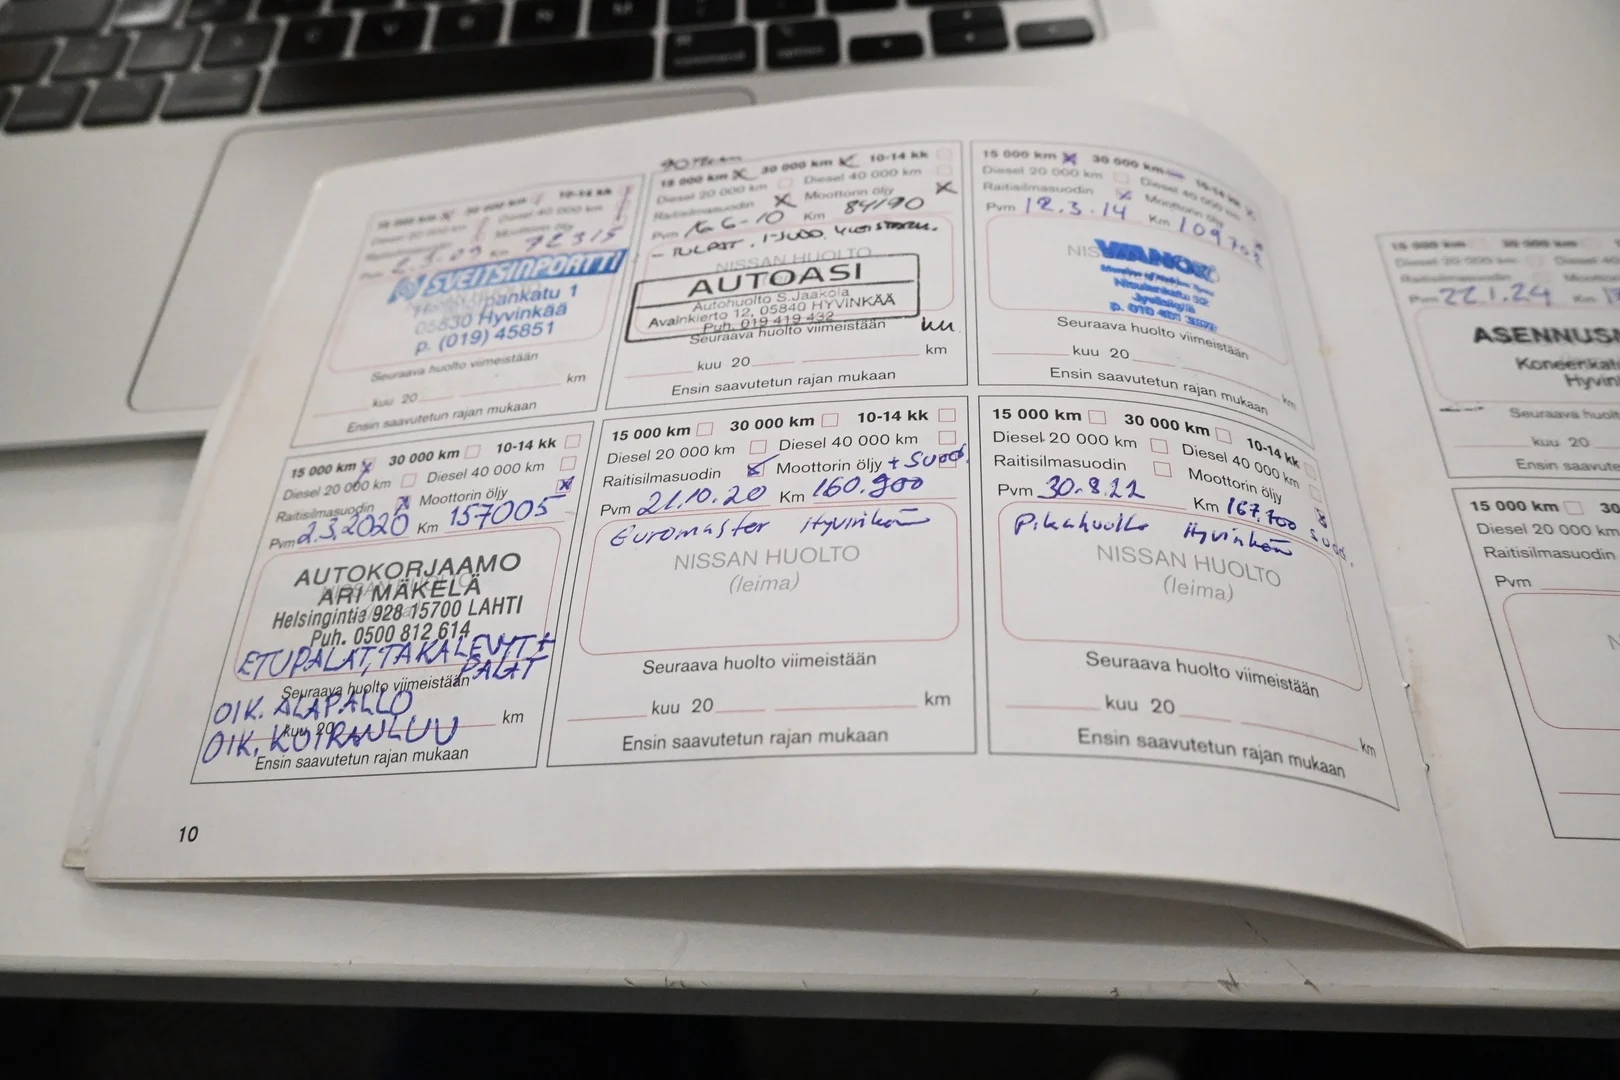 command
option
15 000 km 30 000 km 10-14 kk
Diesel 20 000 km Diesel 40 000 km
Moottorin öljy
Pvm Km 72315
SVEITSINPORTTI
pankatu 1
05830 Hyvinkää
p. (019) 45851
Seuraava huolto viimeistään
kuu 20 km
Ensin saavutetun rajan mukaan
15 000 km 30 000 km 10-14 kk
Diesel 20 000 km Diesel 40 000 km
Raitisilmasuodin Moottorin öljy
Pvm 16.6-10 Km 84190
NISSAN HUOLTO
AUTOASI
Autohuolto S.Jaakola
Avainkierto 12, 05840 HYVINKÄÄ
Puh. 019 419 432
Seuraava huolto viimeistään
kuu 20 km
Ensin saavutetun rajan mukaan
15 000 km 30 000 km
Diesel 20 000 km Diesel 40 000 km
Raitisilmasuodin Moottorin öljy
Pvm 12.3.14 Km
NIS VIANOR
Jyväskylä
Seuraava huolto viimeistään
kuu 20 km
Ensin saavutetun rajan mukaan
15 000 km 30 000 km 10-14 kk
Diesel 20 000 km Diesel 40 000 km
Raitisilmasuodin Moottorin öljy
Pvm 2.3.2020 Km 157005
AUTOKORJAAMO
ARI MÄKELÄ
Helsingintie 928 15700 LAHTI
Puh. 0500 812 614
ETUPALAT, TAKALEVYT +
PALAT
Seuraava huolto viimeistään
OIK. ALAPALLO
kuu 20 km
OIK. KOIRANLUU
Ensin saavutetun rajan mukaan
15 000 km 30 000 km 10-14 kk
Diesel 20 000 km Diesel 40 000 km
Raitisilmasuodin Moottorin öljy + Suod.
Pvm 21.10.20 Km 160.900
Euromaster Hyvinkää
NISSAN HUOLTO
(leima)
Seuraava huolto viimeistään
kuu 20 km
Ensin saavutetun rajan mukaan
15 000 km 30 000 km 10-14 kk
Diesel 20 000 km Diesel 40 000 km
Raitisilmasuodin Moottorin öljy
Pvm 30.8.22 Km 167.700 suod.
Pikahuolto Hyvinkää
NISSAN HUOLTO
(leima)
Seuraava huolto viimeistään
kuu 20 km
Ensin saavutetun rajan mukaan
10
15 000 km 30 000 km
Diesel 20 000 km Diesel 40
Raitisilmasuodin
Pvm 22.1.24 Km
ASENNUS
Koneenkat
Hyvin
Seuraava huolto
kuu 20
Ensin saavutetun
15 000 km 30
Diesel 20 000 km
Raitisilmasuodin
Pvm